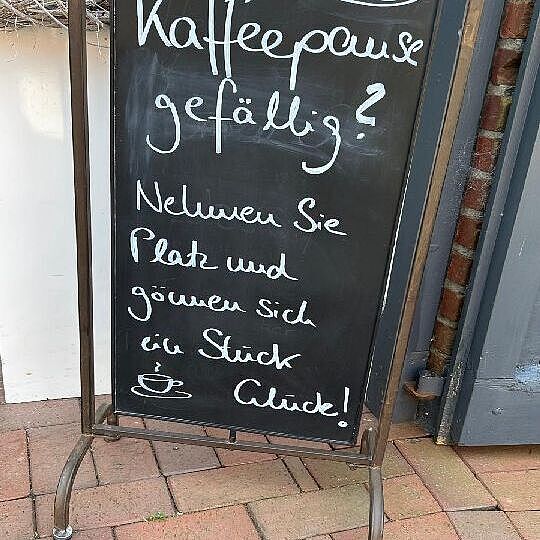 Kaffeepause
gefällig?
Nehmen Sie
Platz und
gönnen sich
ein Stück
Glück!